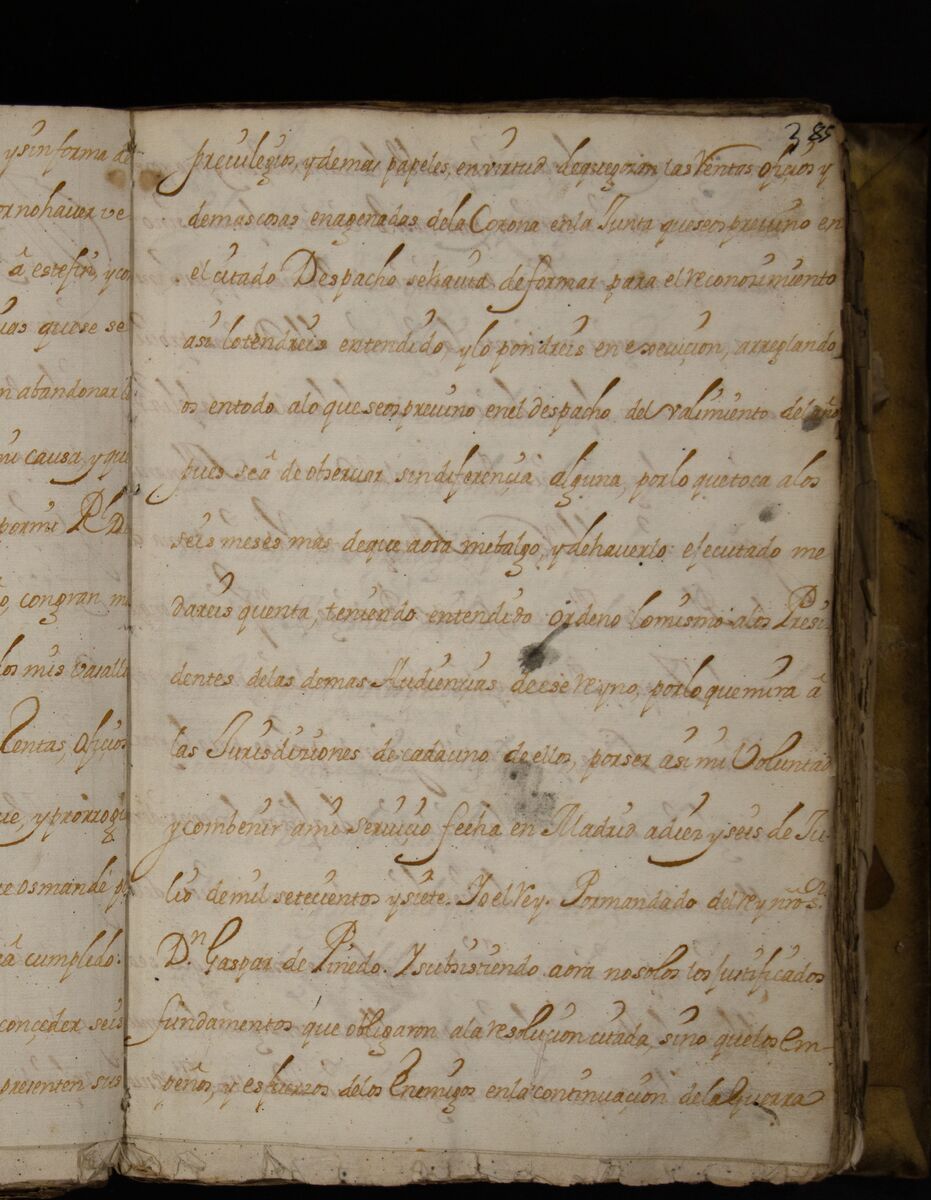 y sin forma de
or no haver ve
â este fin, y con
vas que se se
n abandonar
mi causa, y que
por mi Rl D
o, con gran m
los mis vasallo
Rentas, ofiçios
ue, y prorrog
e os mandé p
eâ cumplido.
conçeder seis
presenten sus
285
previlegios, y demas papeles, en virtud de que goçan las Rentas ofiçios y
demas cosas enagenadas de la Corona en la Junta que se os previno en
el citado Despacho se havia de formar para el reconosimiento
asi lo tendreis entendido, y lo pondreis en execuçion, arreglando
os en todo a lo que se os previno en el despacho del valimiento del año
pues se â de observar sin diferençia alguna, por lo que toca a los
seis meses mas de que aora me balgo, y de haverlo ejecutado me
dareis quenta, teniendo entendido ordeno lo mismo a los Presi
dentes de las demas Audiençias de ese reyno, por lo que mira â
las Jurisdiziones de cada uno de ellos, por ser asi mi Voluntad
y combenir a mi serviçio fecha en Madrid a diez y seis de Ju-
lio de mil seteçientos y siete. Yo el Rey. Por mandado del rey nrõ Sr.
Dn Gaspar de Pinedo. Y subsistiendo aora no solo los justificados
fundamentos que obligaron a la resoluçion citada, sino que los em-
peños, y esfuerzos de los Enemigos en la continuaçion de la Guerra